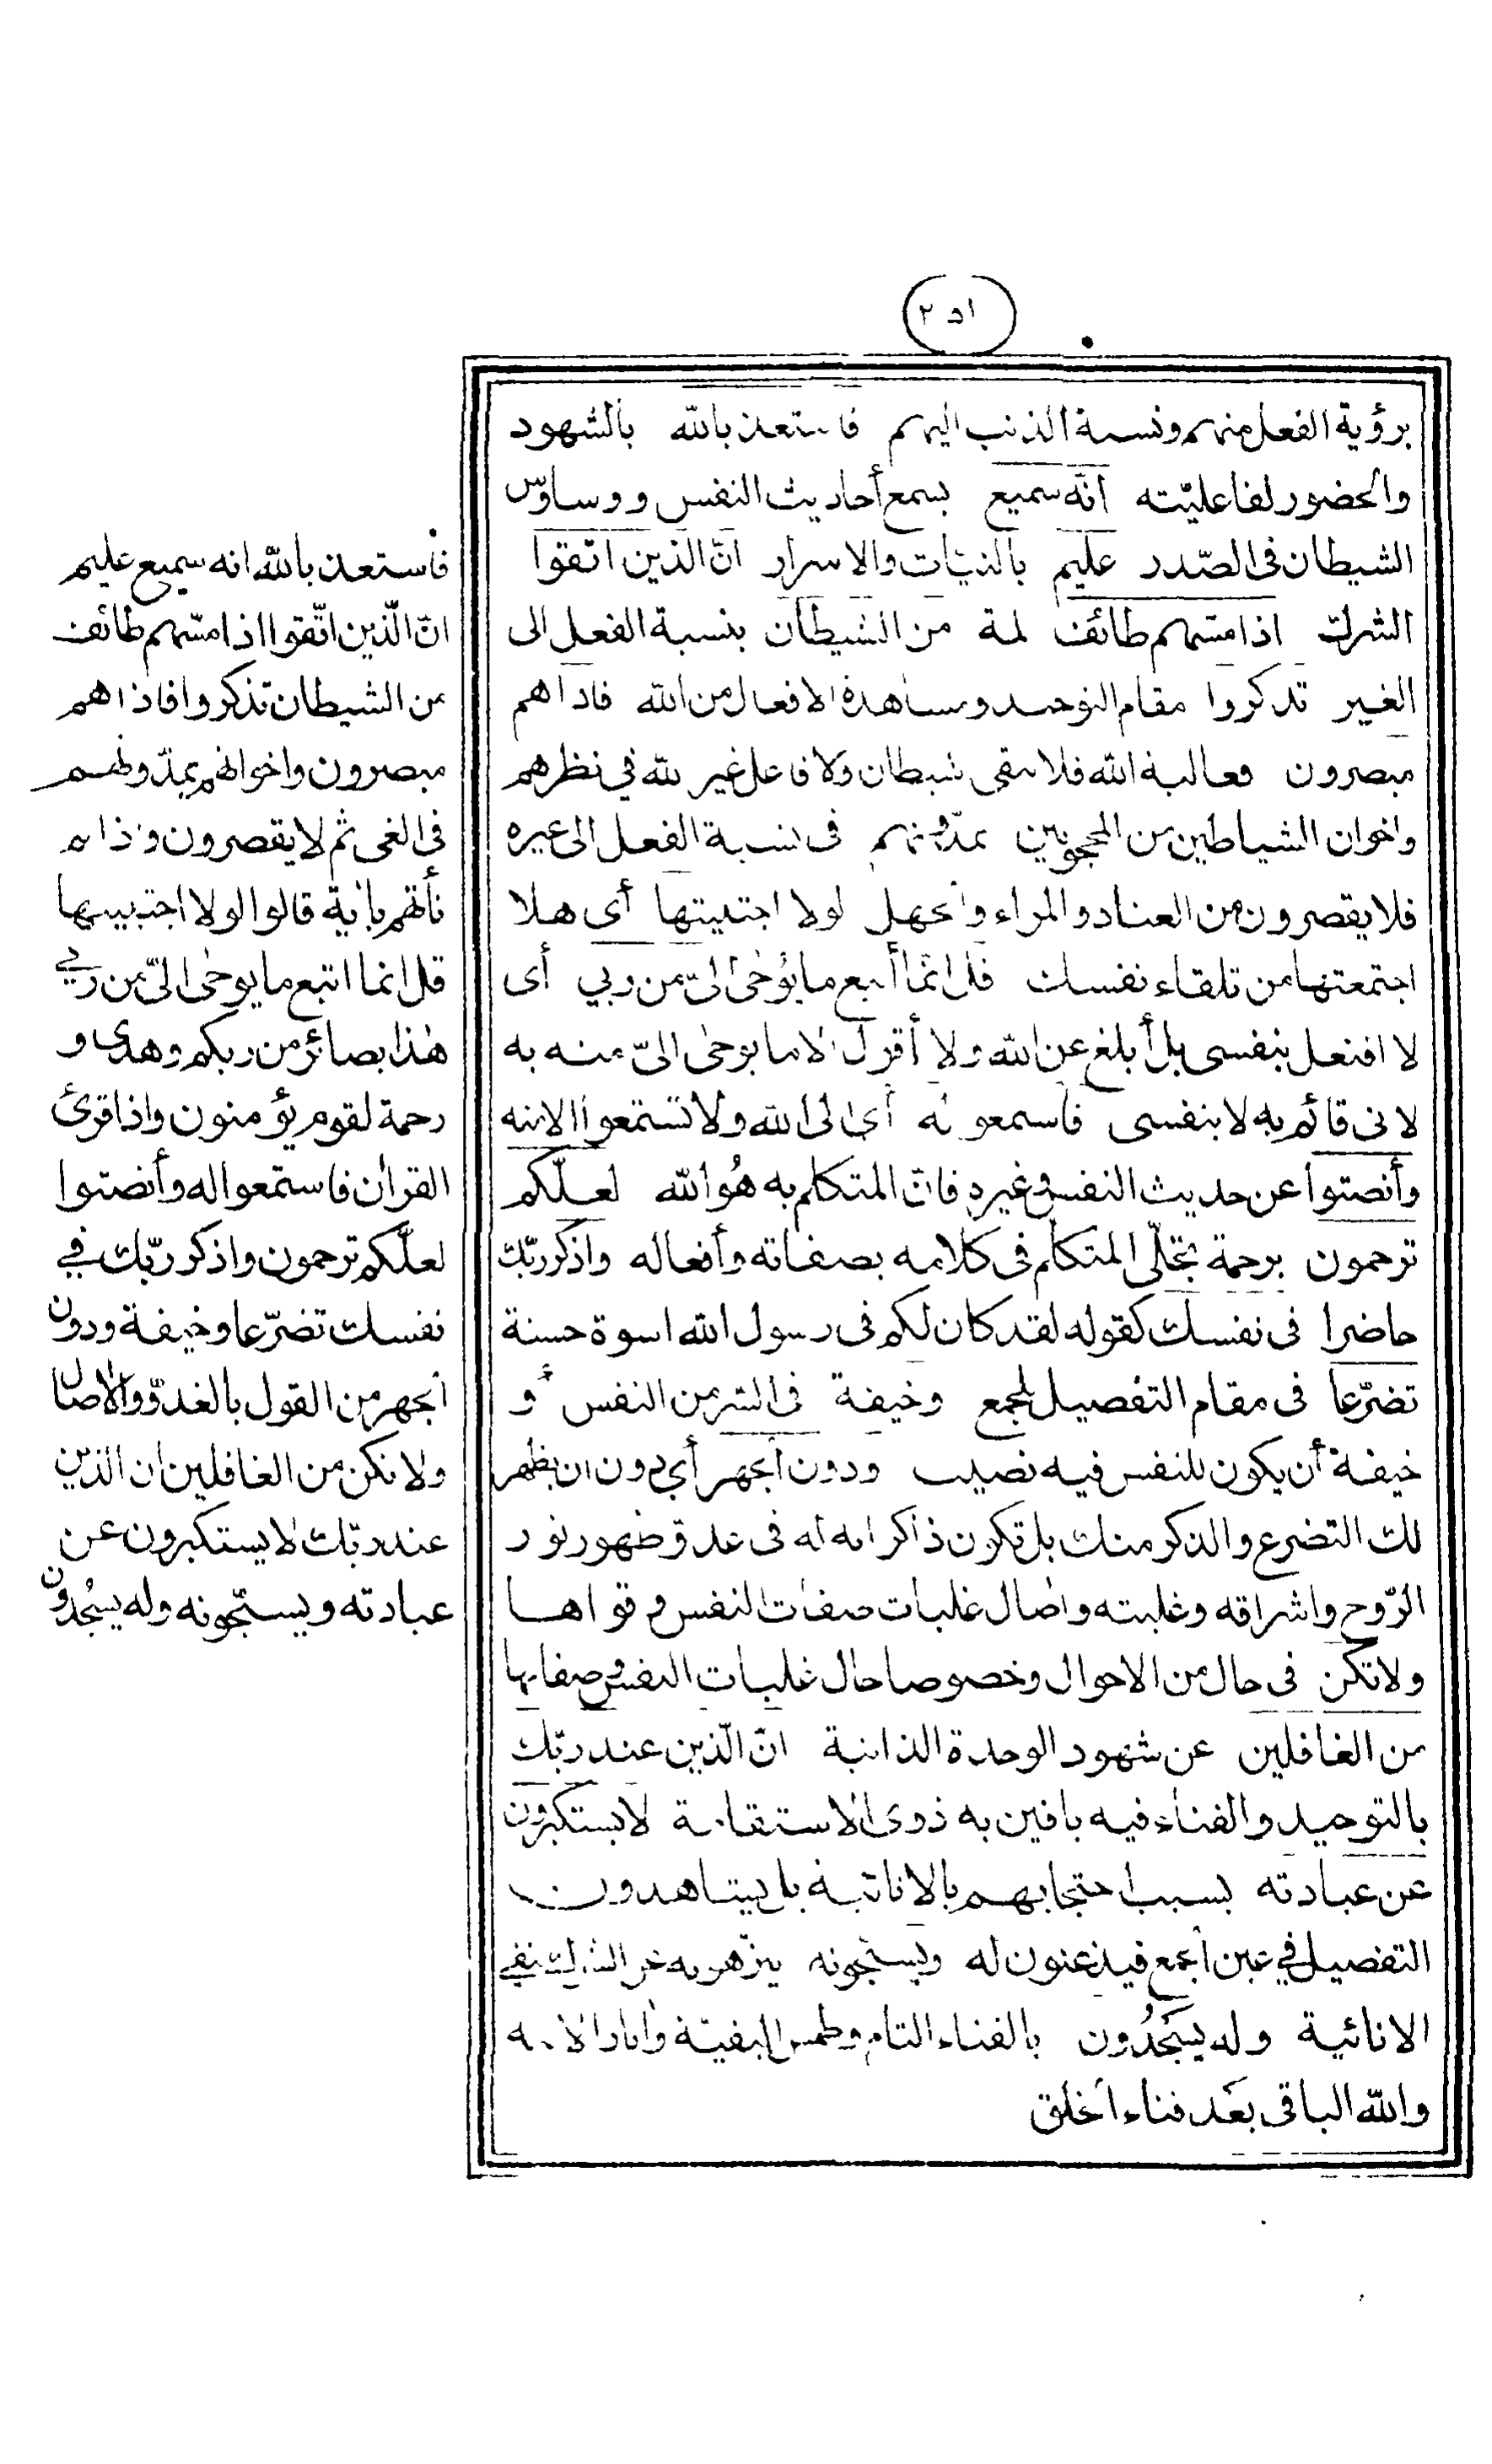 ٢٥١
برؤية الفعل منهم ونسبة الذنب اليهم فاستعذ بالله بالشهود
والحضور لفاعليّته انّه سميع يسمع أحاديث النفس ووساوس
الشيطان فى الصّدر عليم بالنيّات والاسرار انّ الذين اتّقوا
الشرك اذا مسّهم طائف لمة من الشيطان بنسبة الفعل الى
الغير تذكروا مقام التوحيد ومشاهدة الافعال من الله فاذاهم
مبصرون فعالية الله فلا يبقى شيطان ولا فاعل غير لله في نظرهم
واخوان الشياطين من المحجوبين يمدّونهم فى نسبة الفعل الى غيره
فلا يقصرون من العناد والمراء والجهل لولا اجتبيتها أى هلا
اجتمعتها من تلقاء نفسك قل انّما أتبع ما يوُحىٰ الىّ من ربي أى
لا افتعل بنفسى بل أبلغ عن الله ولا أقول الا ما يوحى الىّ منه به
لانى قائم به لا بنفسى فاستمعو له أى الى الله ولا تستمعوا الا منه
وأنصتوا عن حديث النفس وغيره فانّ المتكلم به هُو الله لعلّكم
ترحمون برحمة تجلّى المتكلم فى كلامه بصفاته وأفعاله واذكر ربّك
حاضرا فى نفسك كقوله لقد كان لكم فى رسول الله اسوة حسنة
تضرّعا فى مقام التفصيل للجمع وخيفة فى السّر من النفس أو
خيفة أن يكون للنفس فيه نصيب ودون الجهر أي دون ان يظهر
لك التضرع والذكر منك بل تكون ذاكرا به له فى غدو ظهور نور
الرّوح واشراقه وغلبته واٰصال غلبات صفات النفس وقواها
ولا تكن فى حال من الاحوال وخصوصا حال غلبات النفس وصفاتها
من الغافلين عن شهود الوحدة الذاتية انّ الّذين عند ربّك
بالتوحيد والفناء فيه باقين به ذوى الاستقامة لا يستكبرون
عن عبادته بسبب احتجابهم بالانائية بل يشاهدون
التفصيل في عين الجمع فيذعنون له ويسبّحونه ينزّهونه عن الشرك بنفي
الانائية وله يسجُدُون بالفناء التام وطمس البقيّة واٰثار الا..ه
والله الباقى بعَد فناء الخلق
فاستعذ بالله انه سميع عليم
انّ الّذين اتّقوا اذا مسّهم طائف
من الشيطان تذكروا فاذاهم
مبصرون واخوانهم يمدّونهم
فى الغى ثم لا يقصرون واذا لم
تأتهم باٰية قالوا لولا اجتبيتها
قل انما اتبع ما يوحى الىّ من ربّي
هٰذا بصائر من ربكم وهدى و
رحمة لقوم يؤمنون واذا قرئ
القراٰن فاستمعوا له وأنصتوا
لعلّكم ترحمون واذكر ربّك في
نفسك تضرّعا وخيفة ودون
الجهر من القول بالغدوّ والاٰصال
ولا تكن من الغافلين ان الذين
عند ربّك لا يستكبرون عن
عبادته ويسبّحونه وله يسجُدون